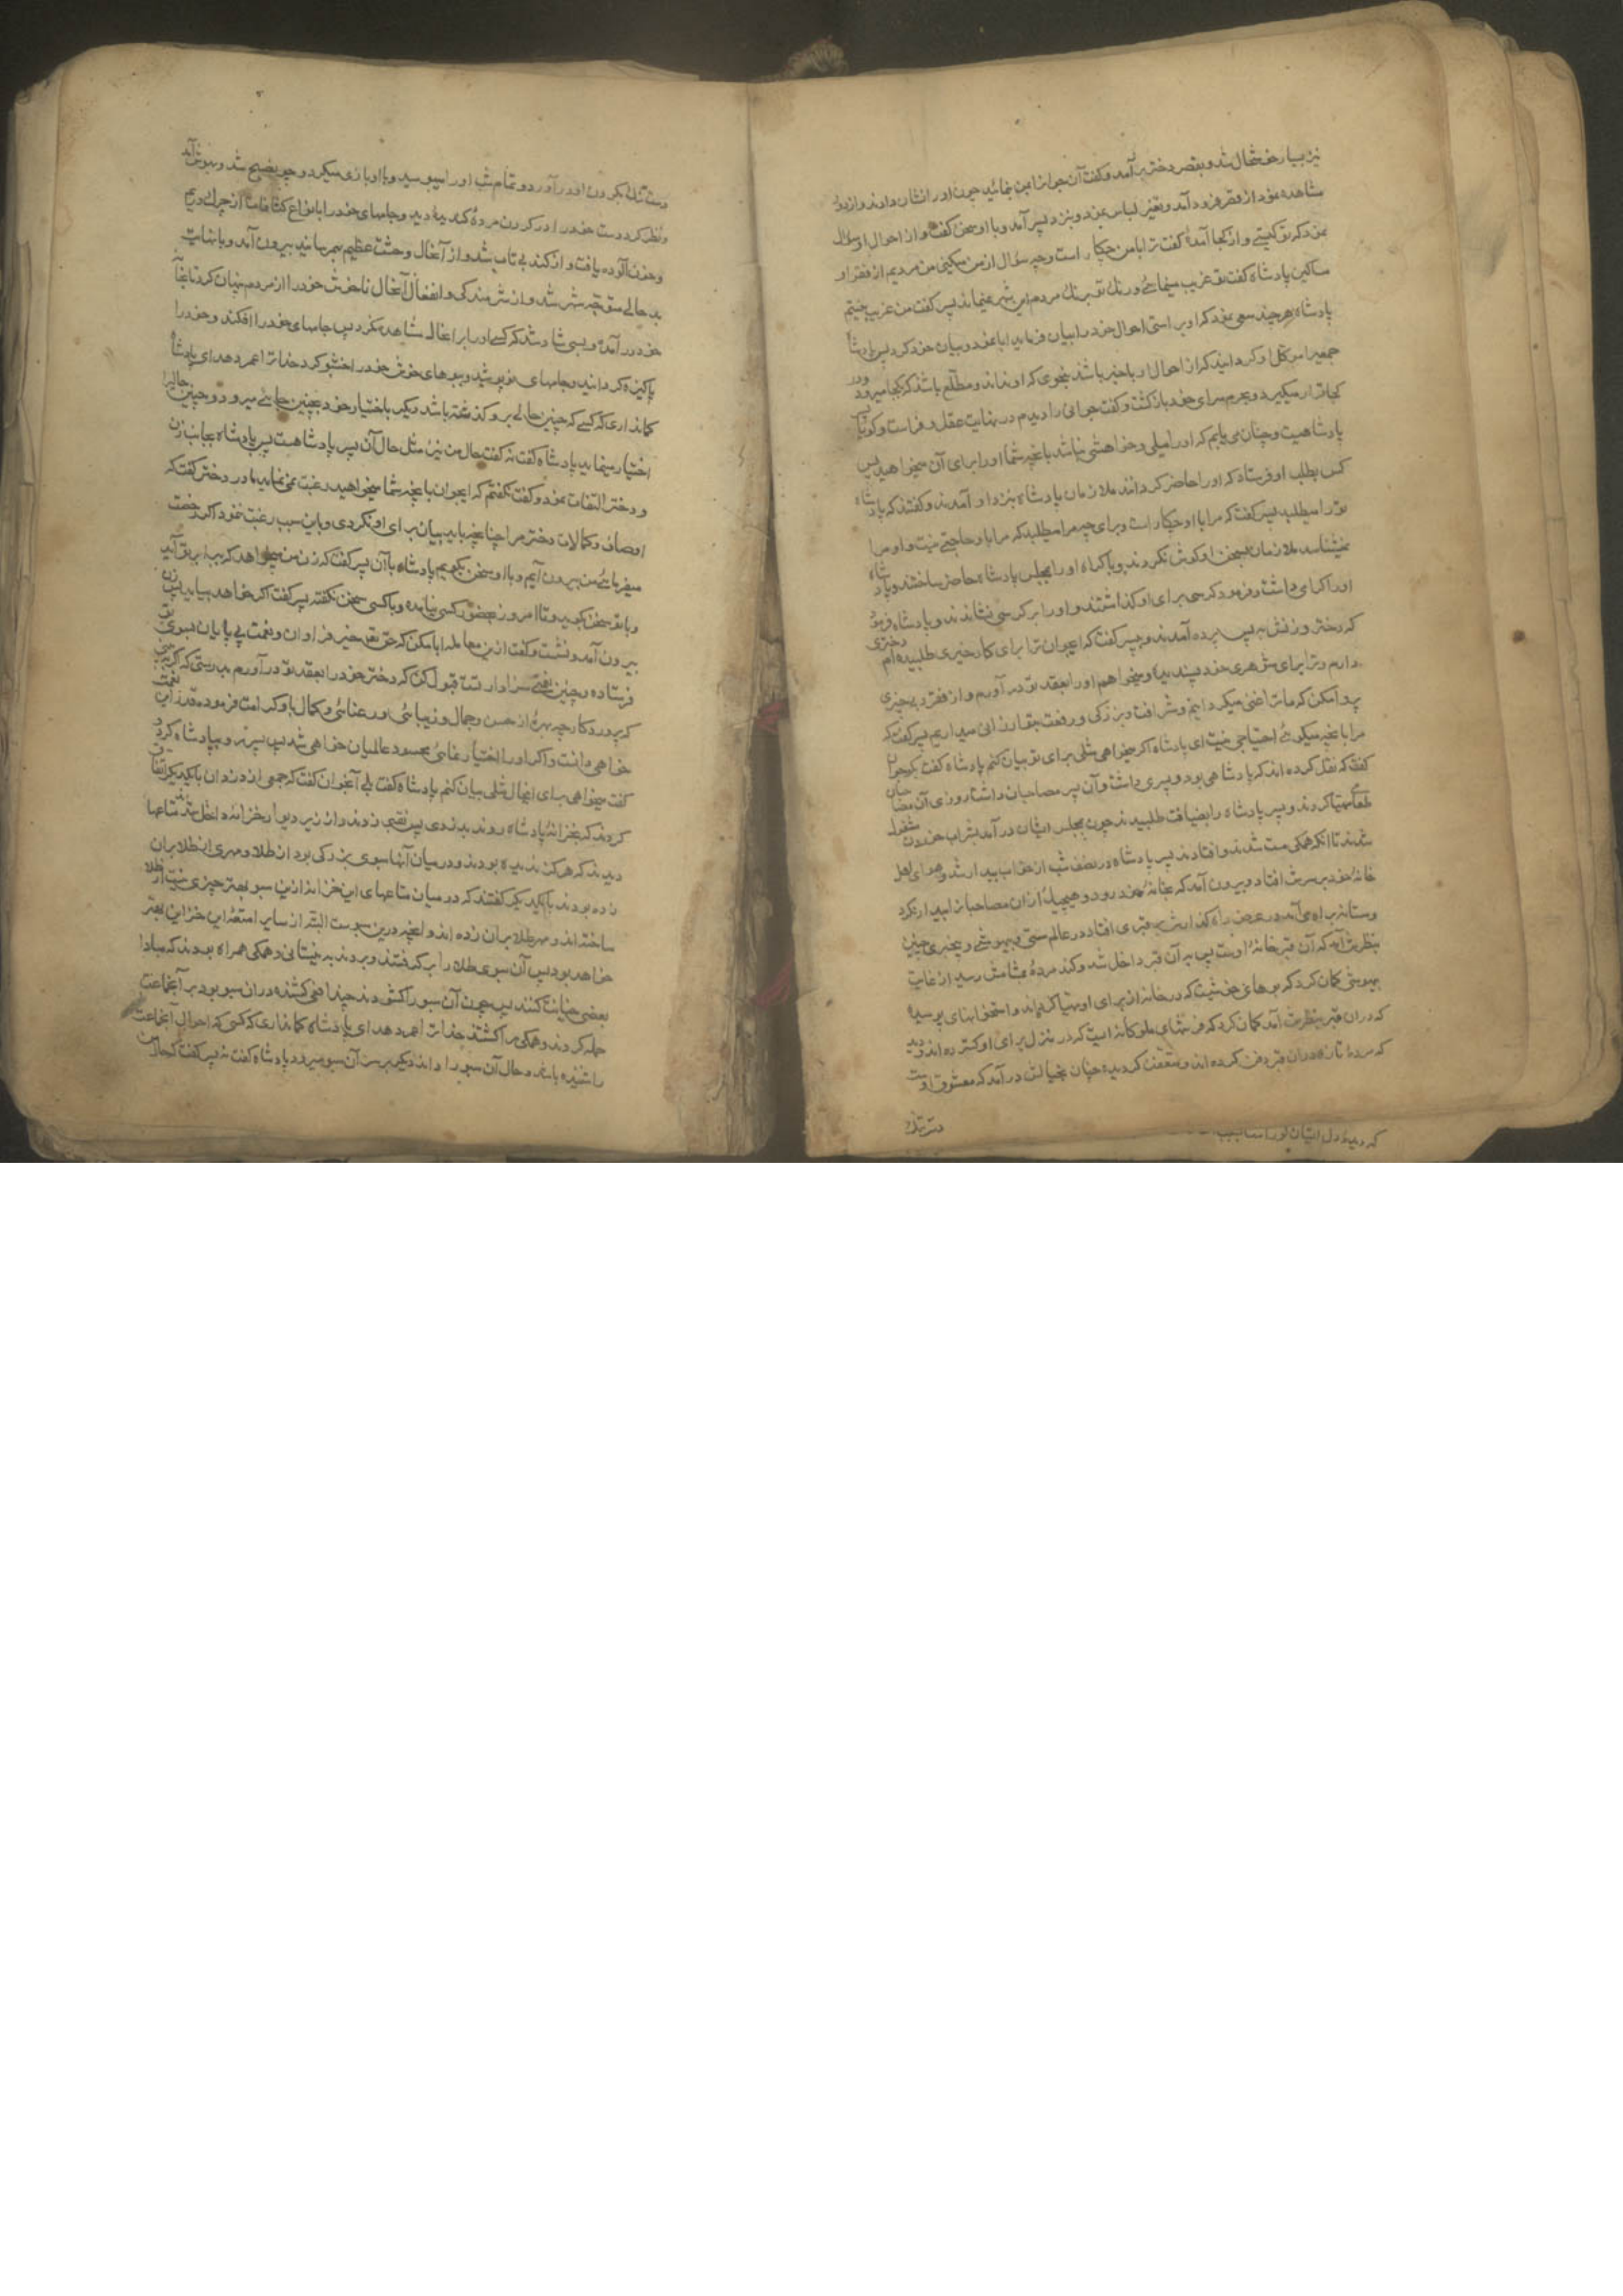 نیز بسیار خوشحال شد و بقصر دختر بر آمد و گفت آن جوانرا بمن بنمائید چون او را نشان دادند و از دور
مشاهده نمود از قصر فرود آمد و تغییر لباس نمود و بنزد پسر آمد و با او سخن گفت و از احوال او سؤال
نمود که تو کیستی و از کجا آمدهٔ گفت ترا با من چکار است و چه سؤال از من میکنی من مردیم از فقرا و
مساکین پادشاه گفت تو غریب مینمائی و رنک تو برنک مردم این شهر نمیماند پسر گفت من غریب نیستم
پادشاه هر چند سعی نمود که او براستی احوال خود را بیان فرماید ابا نمود و بیان خود نکرد پس پادشاه
جمعی را موکل او گردانید که از احوال او باخبر باشند بنحوی که او نداند و مطلع باشند که بکجا میرود و در
کجا قرار میگیرد و بحرم سرای خود بازگشت و گفت جوانی را دیدم در نهایت عقل و فراست و گویا پسر
پادشاهیست و چنان می یابم که او را میلی و خواهشی نباشد بآنچه شما او را برای آن میخواهید پس
کس بطلب او فرستاد که او را حاضر گردانند ملازمان پادشاه بنزد او آمدند و گفتند که پادشاه
ترا میطلبد پسر گفت که مرا با او چکار است و برای چه مرا میطلبد که مرا باو حاجتی نیست و او مرا
نمیشناسد ملازمان بسخن او گوش نکردند و باکراه او را بمجلس پادشاه حاضر ساختند و پادشاه
او را گرامی داشت و فرمود کرسی برای او گذاشتند و او را بر کرسی نشاندند و پادشاه فرمود
که دختر و زنش به پس پرده آمدند و بپسر گفت که ایجوان ترا برای کار خیری طلبیده ام دختری
دارم و ترا برای شوهری خود پسندیده و میخواهم او را بعقد تو در آورم و از فقر و بی چیزی
پروا مکن که ما ترا غنی میگردانیم و شرافت و بزرگی و رفعت بتو ارزانی میداریم پسر گفت که
مرا بآنچه میگوئی احتیاجی نیست ای پادشاه اگر میخواهی مثلی برای تو بیان کنم پادشاه گفت بگو جوان
گفت که نقل کرده اند که پادشاهی بود و پسری داشت و آن پسر مصاحبان داشت روزی آن مصاحبان
طعامی مهیا کردند و پسر پادشاه را بضیافت طلبیدند چون بمجلس ایشان در آمد بشراب خوردن مشغول
شدند تا آنکه همگی مست شدند و افتادند پسر پادشاه در نصف شب از خواب بیدار شد و هوای اهل
خانهٔ خود بر سرش افتاد و بیرون آمد که بخانهٔ خود رود و هیچیک از آن مصاحبانرا بیدار نکرد
و مستانه براه می آمد در عرض راه گذارش بر قبری افتاد در عالم مستی و بیهوشی و بیخبری چنین
بنظرش آمد که آن قبر خانهٔ اوست پس بر آن قبر داخل شد و گند مردهٔ بمشامش رسید از غایت
بیهوشی گمان کرد که بوهای خوشیست که در خانه از برای او مهیا کرده اند و استخوانهای پوسیده
که در آن قبر بنظرش آمد گمان کرد که فرشهای ملوکانه ایست که در منزل برای او گسترده اند و دید
که مردهٔ تازه در آن قبر دفن کرده اند و متعفن گردیده چنان بخیالش در آمد که معشوق اوست
دست بگردن
که دیدهٔ دل ایشان نور
دست بگردن او در آورد و تمام شب او را میبوسید و با او بازی میکرد و چون صبح شد و بهوش آمد
و نظر کرد دست خود را در گردن مردهٔ گندیدهٔ دید و جامهای خود را بانواع کثافات از چرک و ریم
و خون آلوده یافت و از گند بی تاب شد و از آنحال وحشت عظیم بهم رسانید بیرون آمد و با نهایت
بد حالی متوجه شهر شد و از شرمندگی و انفعال آنحال ناخوش خود را از مردم پنهان کرد تا بخانهٔ
خود در آمد و بسی شاد شد که کسی او را بر آنحال مشاهده نکرد پس جامهای خود را افکند و خود را
پاکیزه گردانید و جامهای نو پوشید و ببوهای خوش خود را خشبو کرد خدا ترا عمر دهد ای پادشاه
گمان داری که کسی که چنین حالی برو گذشته باشد دیگر باختیار خود بچنین جائی میرود و چنین حالیرا
اختیار مینماید پادشاه گفت نه گفت حال من نیز مثل حال آن پسر پادشاهست پس پادشاه بجانب زن
و دختر التفات نمود و گفت نگفتم که ایجوان بآنچه شما میخواهید رغبت نمی نماید مادر دختر گفت که
اوصاف و کمالات دختر مرا چنانچه باید بیان برای او نکردی و باین سبب رغبت ننمود اگر رخصت
میفرمائی من بیرون آیم و با او سخن بگویم پادشاه بآن پسر گفت که زن من میخواهد که ببرابر تو آید
و با تو سخن بگوید و تا امروز بحضور کسی نیامده و با کسی سخن نگفته پسر گفت اگر خواهد بیاید پس زن
بیرون آمد و نشست و گفت ازین معامله ابا مکن که حق تعالی خیر فراوان و نعمت بی پایان بسوی تو
فرستاده و چنین نعمتی سزاوار تست قبول کن که دختر خود را بعقد تو در آورم بدرستی که اگر ببینی
که پروردگار چه بهره از حسن و جمال و زیبائی و رعنائی و کمال باو کرامت فرموده قدر این نعمت
خواهی دانست و اگر او را اختیار نمائی محسود عالمیان خواهی شد پس پسر رو بپادشاه کرد و
گفت میخواهی برای اینحال مثلی بیان کنم پادشاه گفت بلی آنجوان گفت که جمعی از دزدان با یکدیگر اتفاق
کردند که بخزانهٔ پادشاه روند بدزدی پس نقبی زدند و از زیر دیوار خزانه داخل شدند متاعها
دیدند که هرگز ندیده بودند و در میان آنها سبوی بزرگی بود از طلا و مهری از طلا بران
زده بودند با یکدیگر گفتند که در میان متاعهای این خزانه ازین سبو بهتر چیزی نیست از طلا
ساخته اند و مهر طلا بران زده اند و آنچه درین سبوست البته از سایر امتعهٔ این خزاین بهتر
خواهد بود پس آن سبوی طلا را بر گرفتند و بردند به نیستانی و همگی همراه بودند که مبادا
بعضی خیانت کنند پس چون آن سبو را گشودند چند افعی کشنده در آن سبو بود بر آنجماعت
حمله کردند و همگی را کشتند خدا ترا عمر دهد ای پادشاه گمان داری که کسی که احوال آنجماعت
را شنیده باشد و حال آن سبو را داند دیگر بر سر آن سبو میرود پادشاه گفت نه پسر گفت که حال من